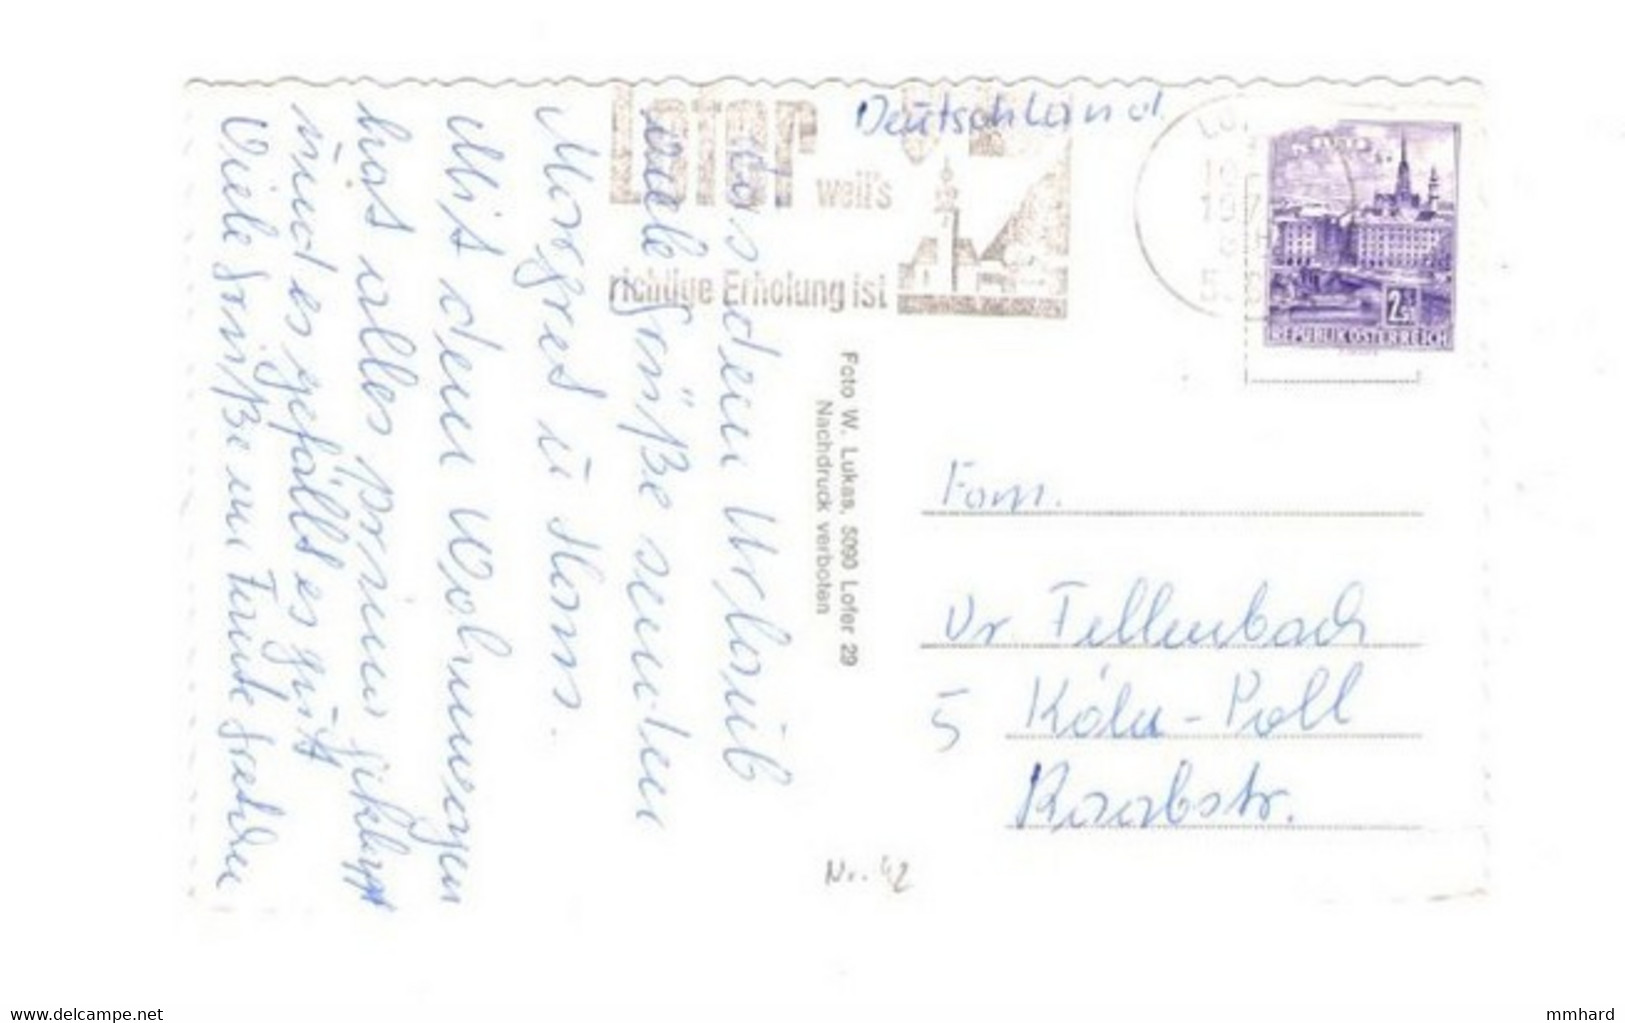 Lofer
weil's
richtige Erholung ist
Deutschland
REPUBLIK ÖSTERREICH
Aus dem Urlaub
viele Grüße senden
Margret u Hans.
Mit den Wohnungen
hat alles prima geklappt
und es gefällt es gut
Viele Grüße an Tante
Foto W. Lukas, 5090 Lofer 29
Nachdruck verboten
Fam.
Dr Fellenbach
5 Köln-Poll
Raabstr.
Nr. 42
www.delcampe.net
mmhard